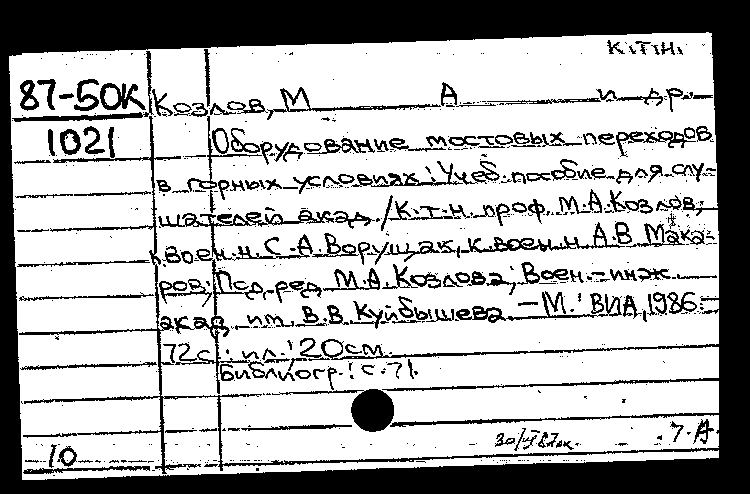 К.Т.Н.
87-50К Козлов, М А и др.
1021 Оборудование мостовых переходов
в горных условиях: Учеб. пособие для слу-
шателей акад. / К.т.н. проф. М.А. Козлов,
к.воен.н. С.А. Ворущак, к.воен.н. А.В Мака-
ров; Под ред М.А. Козлова; Воен.-инж.
акад им. В.В. Куйбышева. — М.: ВИА, 1986.-
72 с.: ил.; 20см.
Библиогр.: с. 71.
10